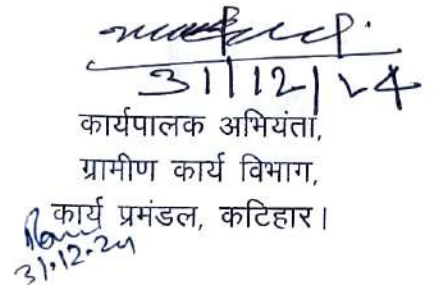 31/12/24
कार्यपालक अभियंता,
ग्रामीण कार्य विभाग,
कार्य प्रमंडल, कटिहार।
31.12.24